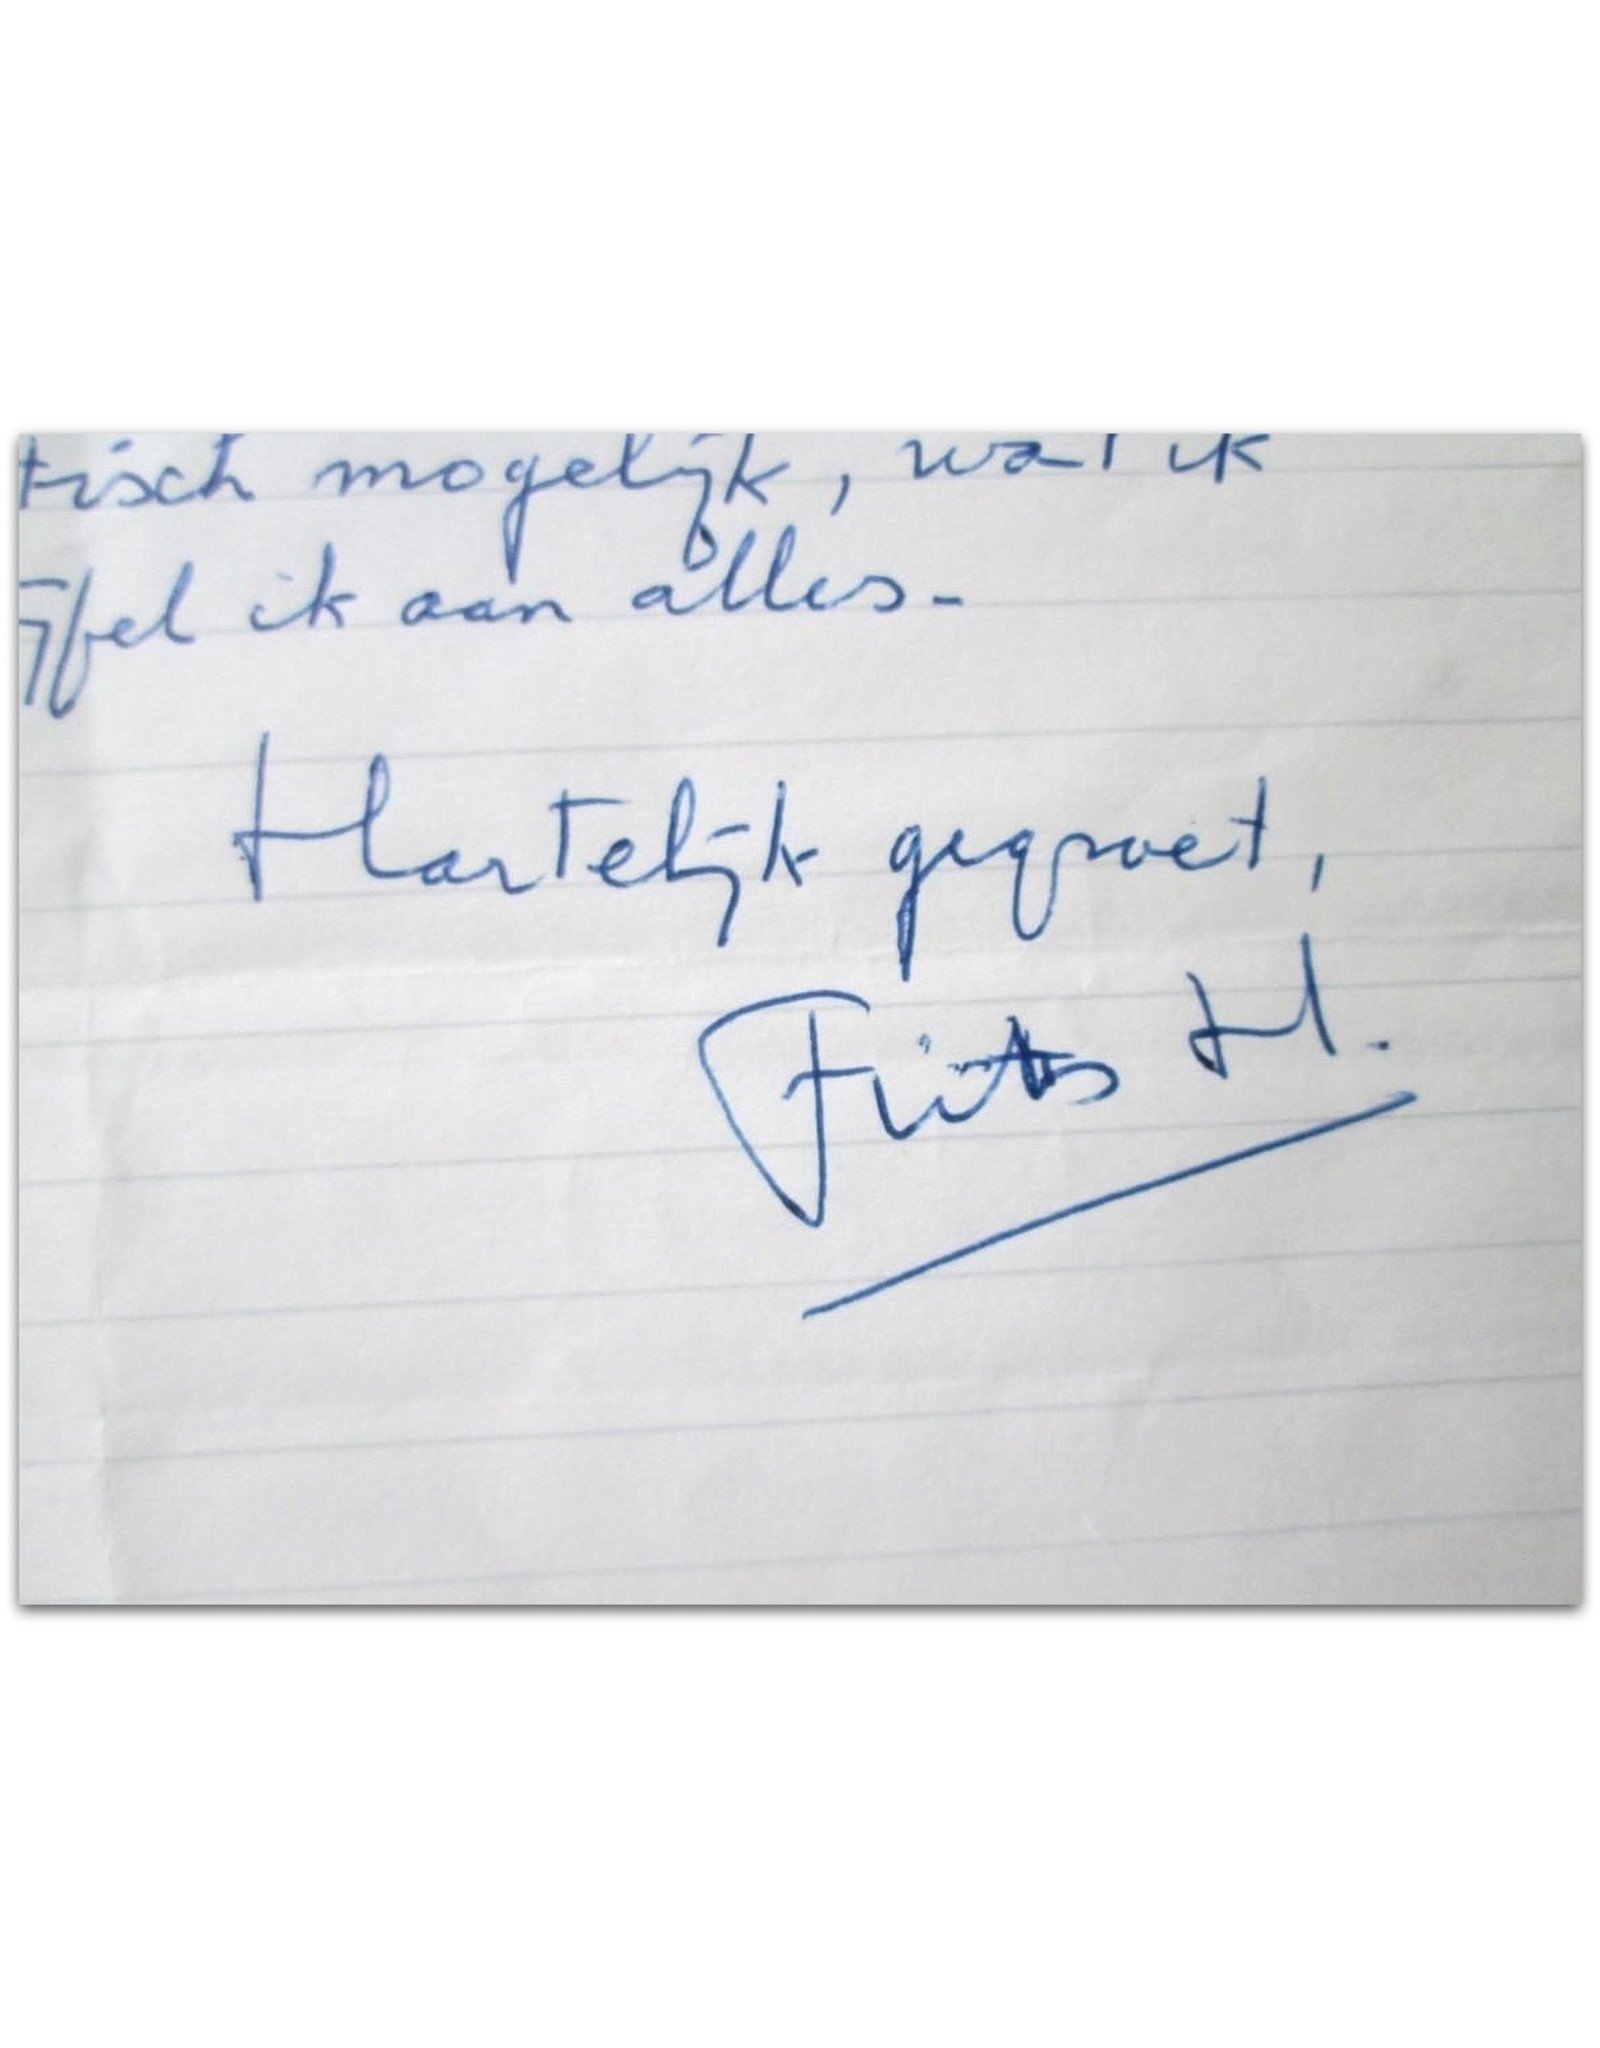 tisch mogelijk, wat ik
ijfel ik aan alles-
Hartelijk gegroet,
Frits H.